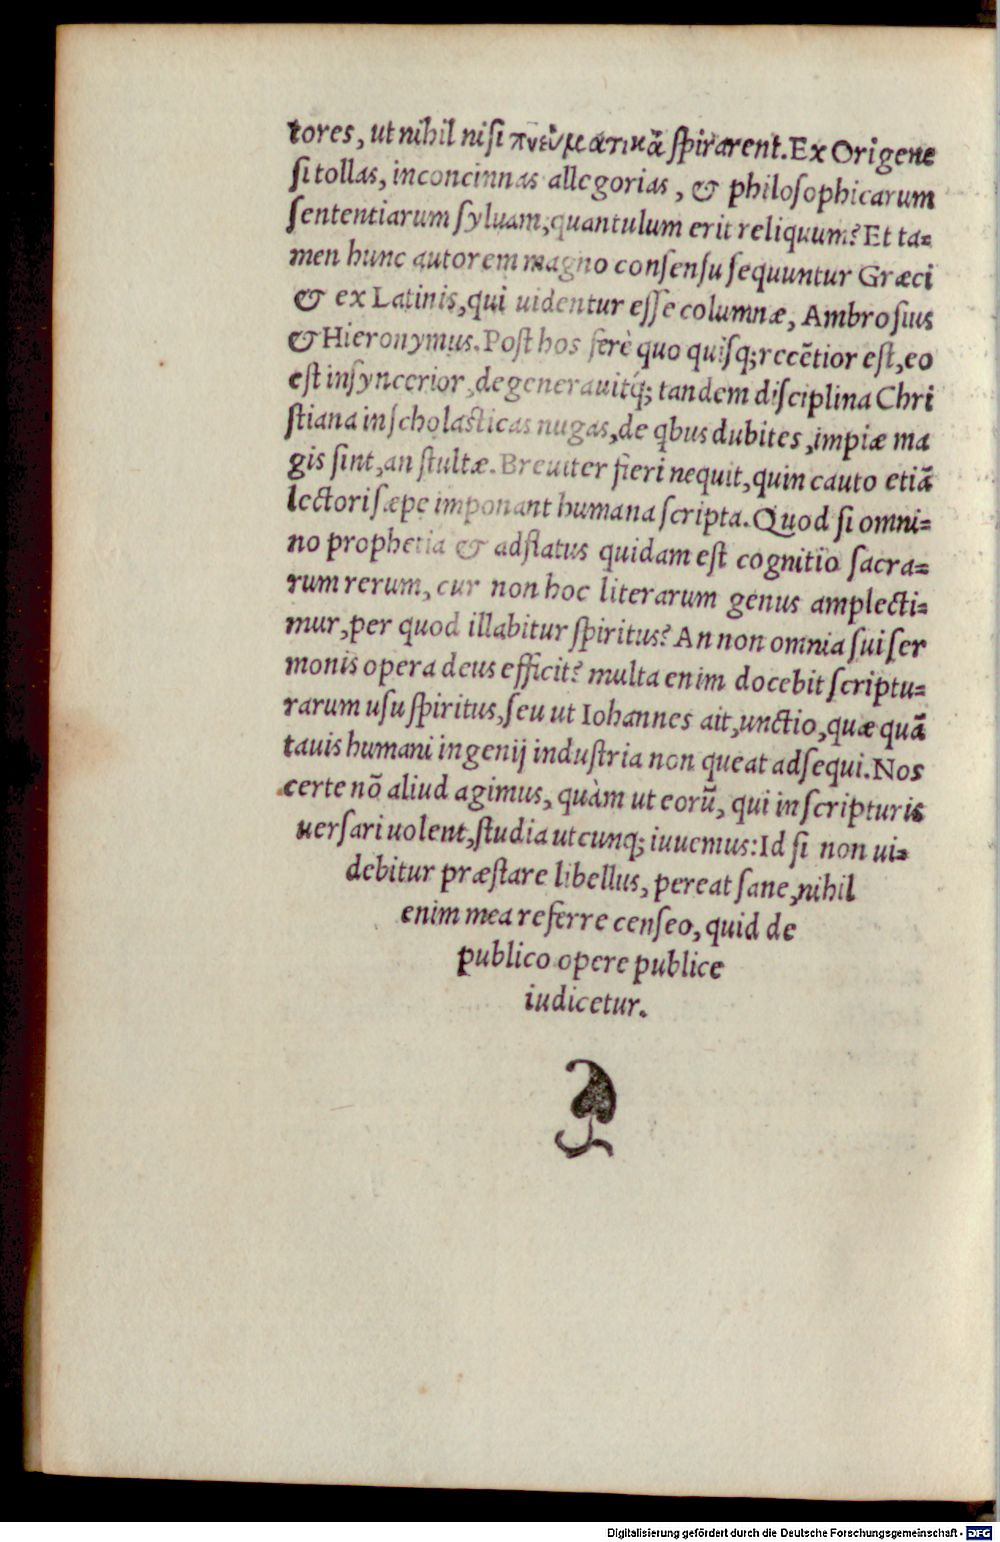 tores, ut nihil niſi πνευματικὰ ſpirarent. Ex Origene
ſi tollas, inconcinnas allegorias, & philoſophicarum
ſententiarum ſyluam, quantulum erit reliquum? Et ta-
men hunc autorem magno conſenſu ſequuntur Græci
& ex Latinis, qui uidentur eſſe columnæ, Ambroſius
& Hieronymus. Poſt hos ferè quo quiſq; recẽtior eſt, eo
eſt inſyncerior, degenerauitq́; tandem diſciplina Chri
ſtiana in ſcholaſticas nugas, de qbus dubites, impiæ ma
gis ſint, an ſtultæ. Breuiter fieri nequit, quin cauto etiã
lectori ſæpe imponant humana ſcripta. Quod ſi omni-
no prophetia & adflatus quidam eſt cognitio ſacra-
rum rerum, cur non hoc literarum genus amplecti-
mur, per quod illabitur ſpiritus? An non omnia ſui ſer
monis opera deus efficit? multa enim docebit ſcriptu-
rarum uſu ſpiritus, ſeu ut Iohannes ait, unctio, quæ quã
tauis humani ingenij induſtria non queat adſequi. Nos
certe nõ aliud agimus, quàm ut eorũ, qui in ſcripturis
uerſari uolent, ſtudia utcunq; iuuemus: Id ſi non ui-
debitur præſtare libellus, pereat ſane, nihil
enim mea referre cenſeo, quid de
publico opere publice
iudicetur.
Digitalisierung gefördert durch die Deutsche Forschungsgemeinschaft - DFG